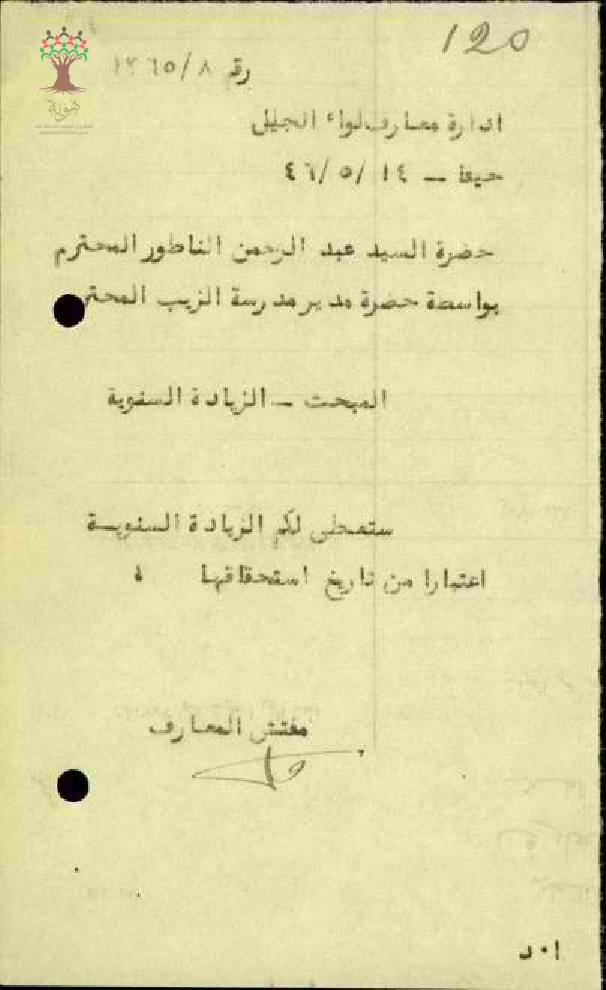 120
رقم ١٣٦٥/٨
هوية
ادارة معارف لواء الجليل
حيفا - ٤٦/٥/١٤
حضرة السيد عبد الرحمن الناطور المحترم
بواسطة حضرة مدير مدرسة الزيب المحترم
المبحث - الزيادة السنوية
ستعطى لكم الزيادة السنوية
اعتبارا من تاريخ استحقاقها ،
مفتش المعارف
ا٠د